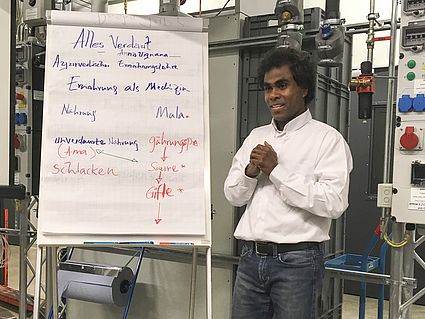 Alles Verdaut
Annavignana
Ayurvedische Ernährungslehre
Ernährung als Medizin
Nahrung Mala
unverdaute Nahrung gährungsp
(Ama) Säure
Schlacken Gifte